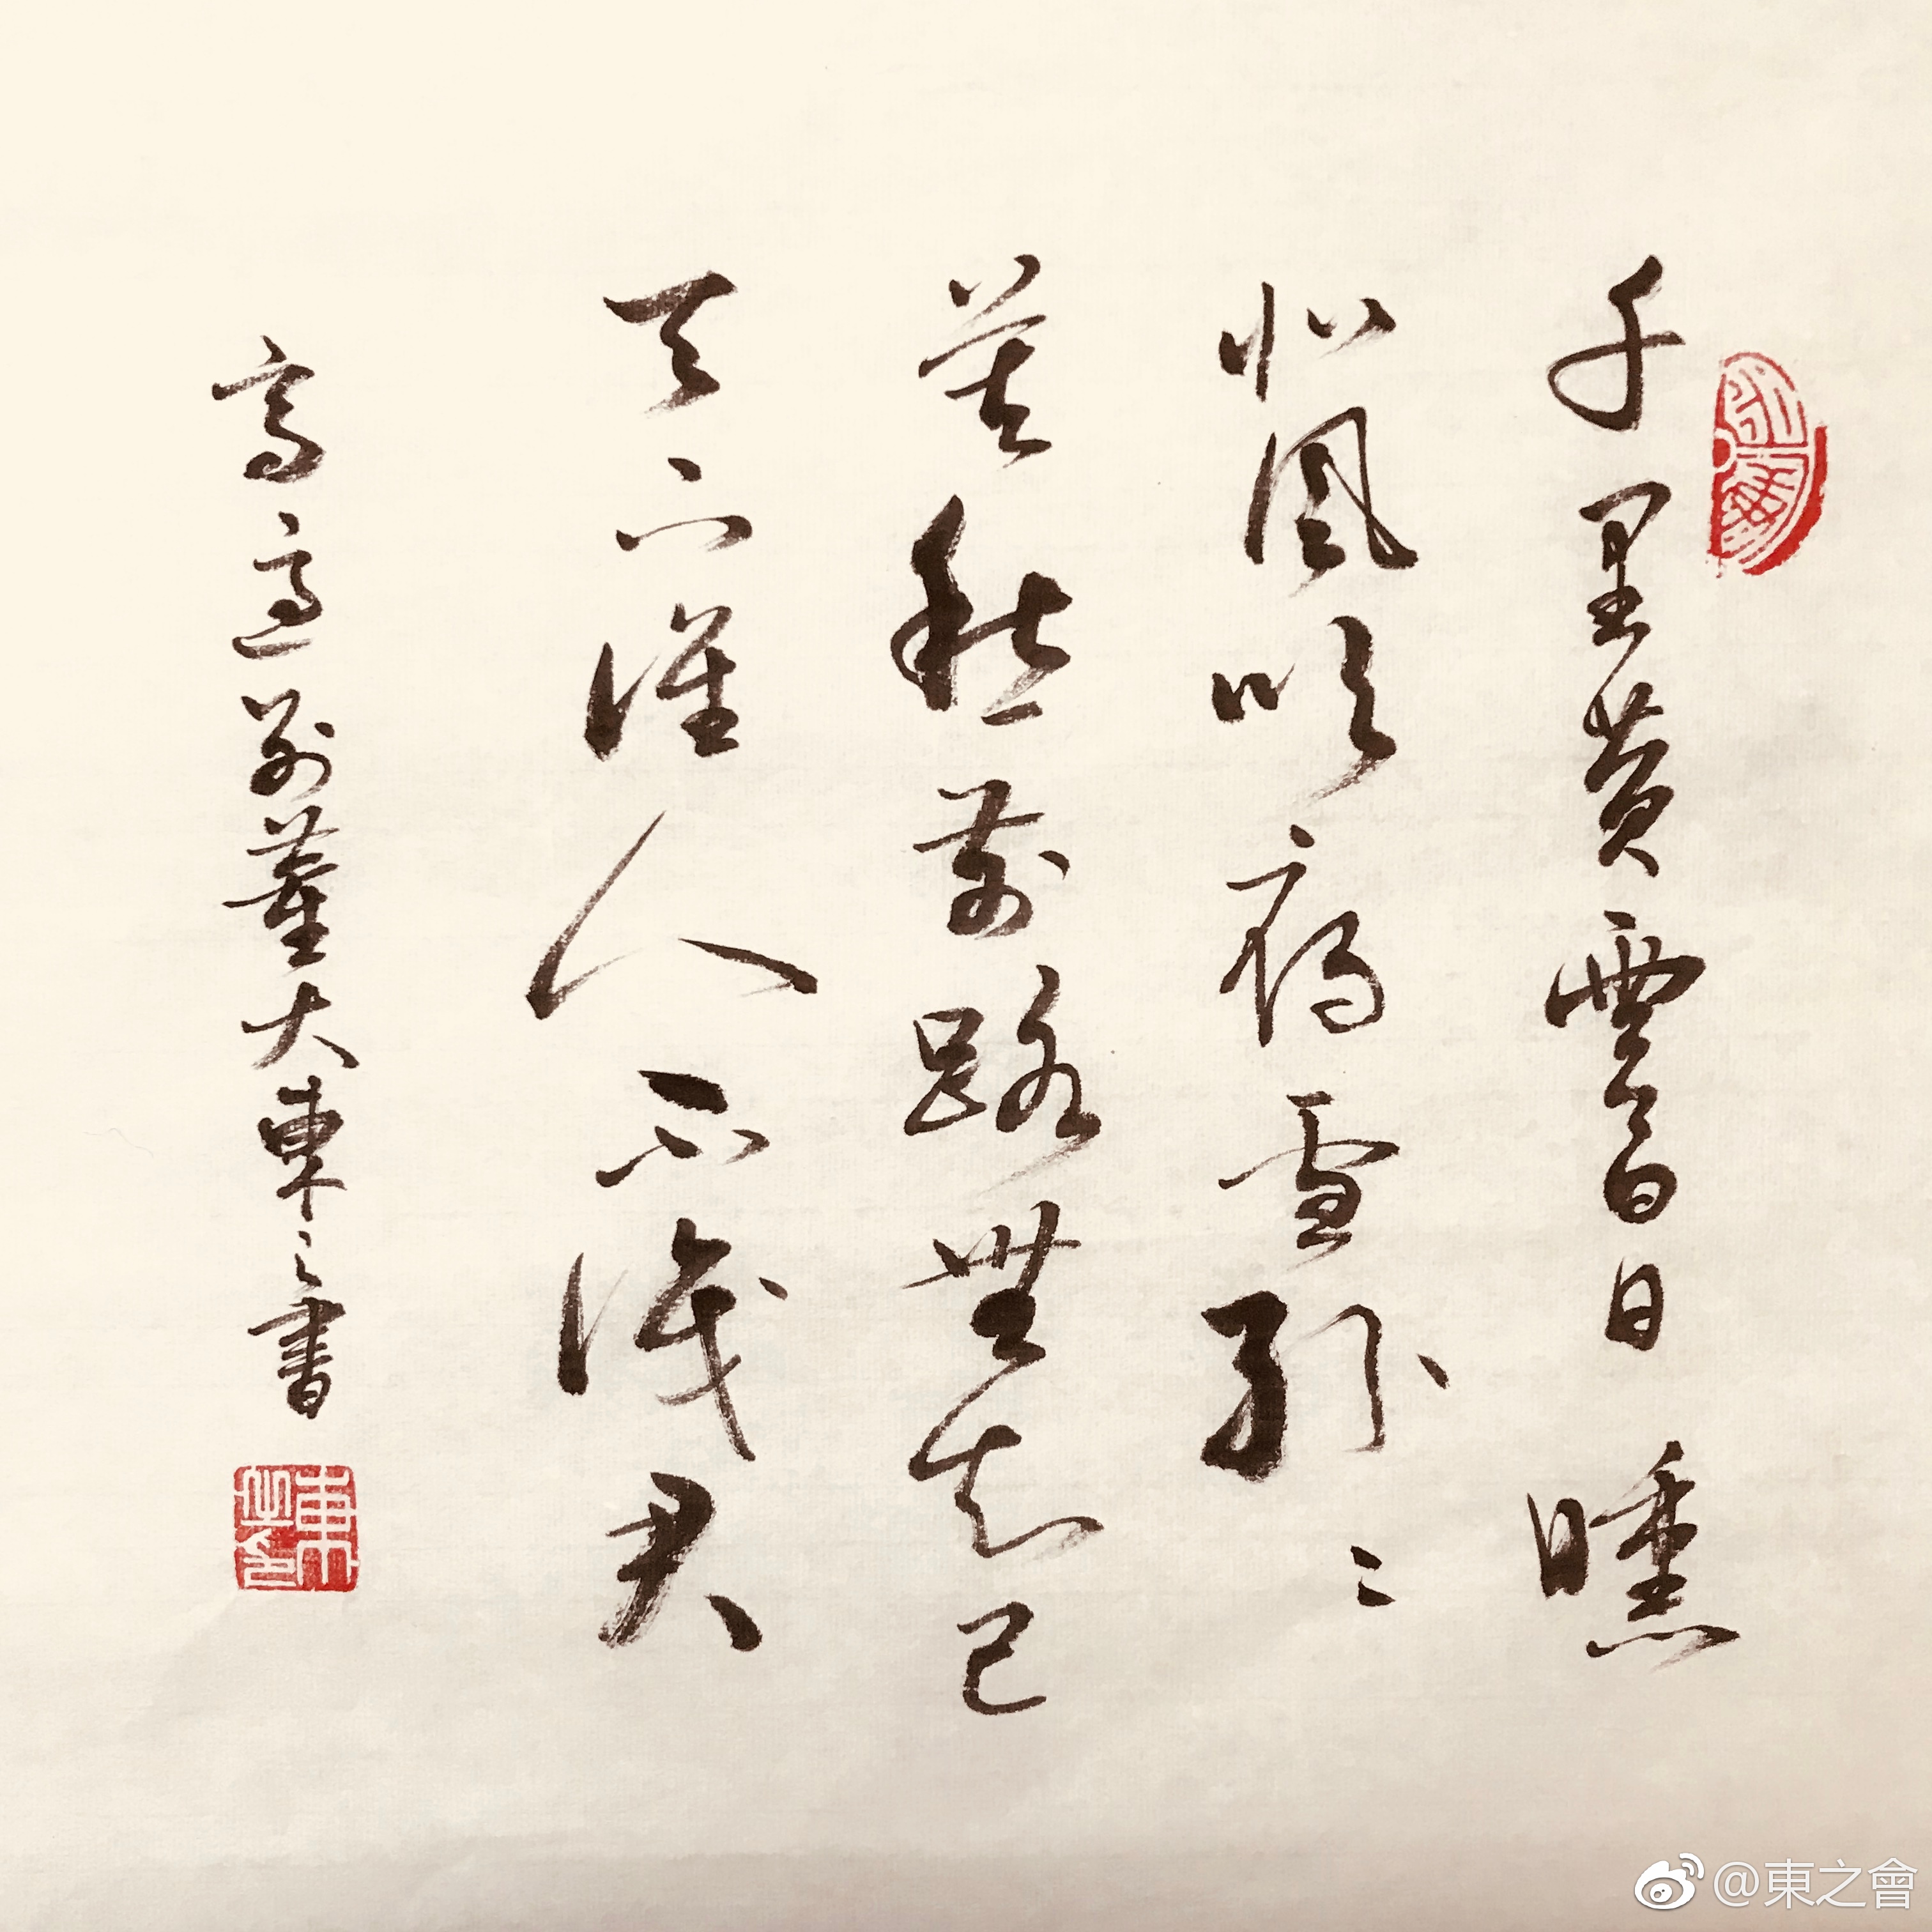 千里黄雲白日曛
北風吹雁雪紛〻
莫愁前路無知己
天下誰人不識君
高適別董大東之書
東之印
@東之會